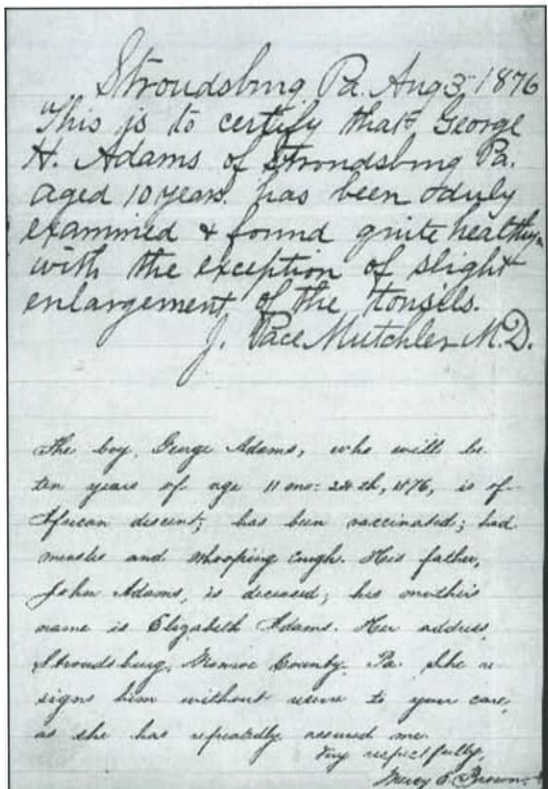 Stroudsburg Pa. Aug 3, 1876
This is to certify that George
H. Adams of Stroudsburg Pa.
aged 10 years. has been duly
examined & found quite healthy
with the exception of slight
enlargement of the tonsils.
J. Pace Mutchler M.D.
The boy, George Adams, who will be
ten years of age 11 mo: 28th, 1876, is of
African descent; has been vaccinated; had
measles and whooping cough. His father,
John Adams, is deceased; his mother's
name is Elizabeth Adams. Her address,
Stroudsburg, Monroe County, Pa. She re-
signs him without reserve to your care,
as she has repeatedly assured me.
Very respectfully,
Mercy E. Brown.